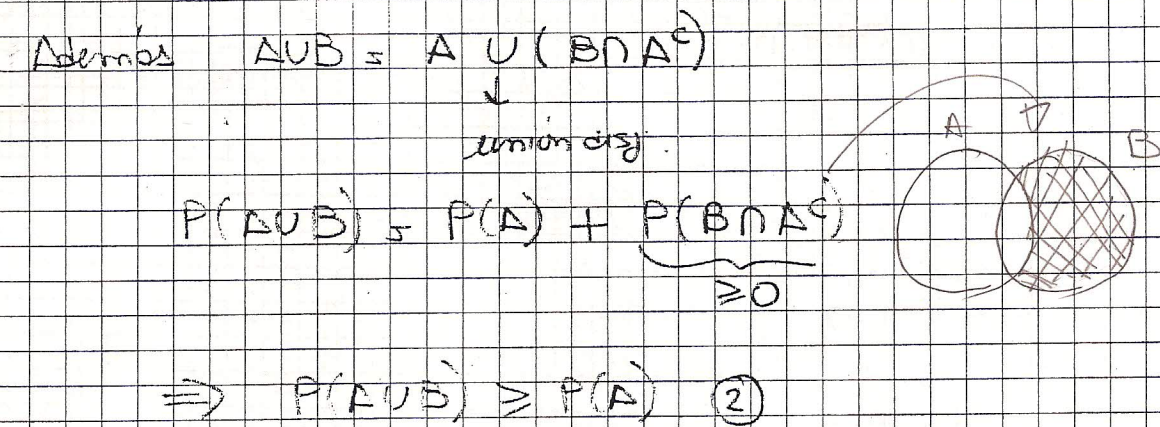 Además A∪B = A ∪ (B∩Aᶜ)
↓
unión disj.
A B
P(A∪B) = P(A) + P(B∩Aᶜ)
≥0
⇒ P(A∪B) ≥ P(A) ②